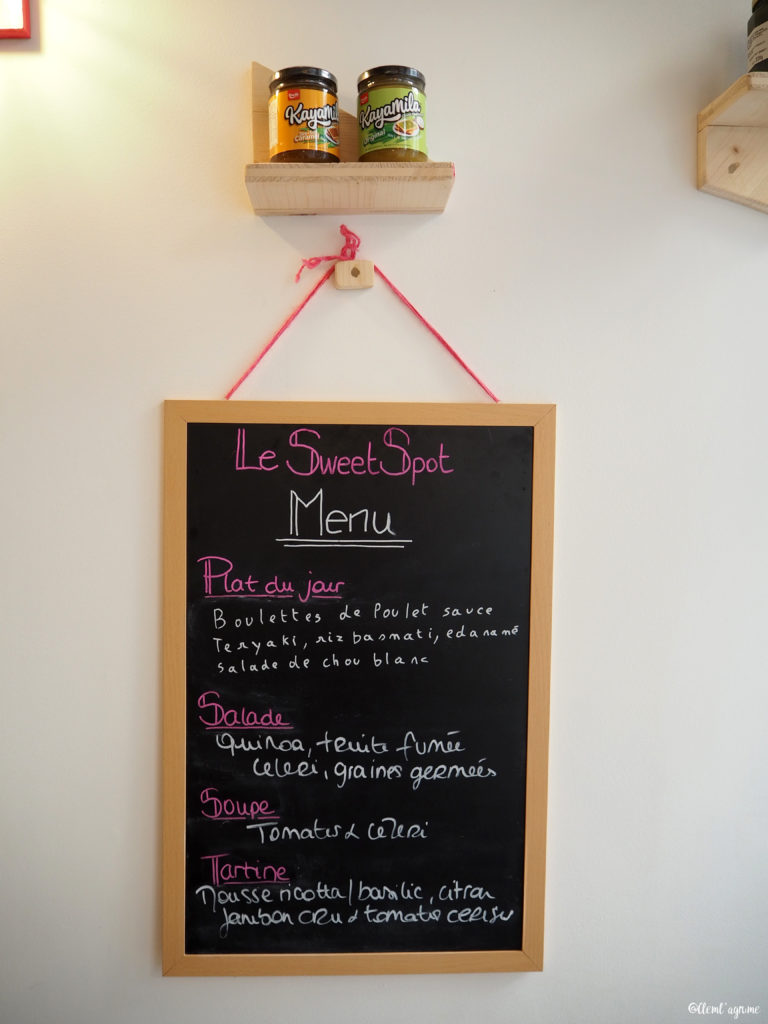 Kayamila
Caramel
Kayamila
Original
Le SweetSpot
Menu
Plat du jour
Boulettes de Poulet sauce
Teryaki, riz basmati, edamamé
salade de chou blanc
Salade
Quinoa, truite fumée
celeri, graines germées
Soupe
Tomates & celeri
Tartine
Mousse ricotta/basilic, citron
jambon cru & tomates cerises